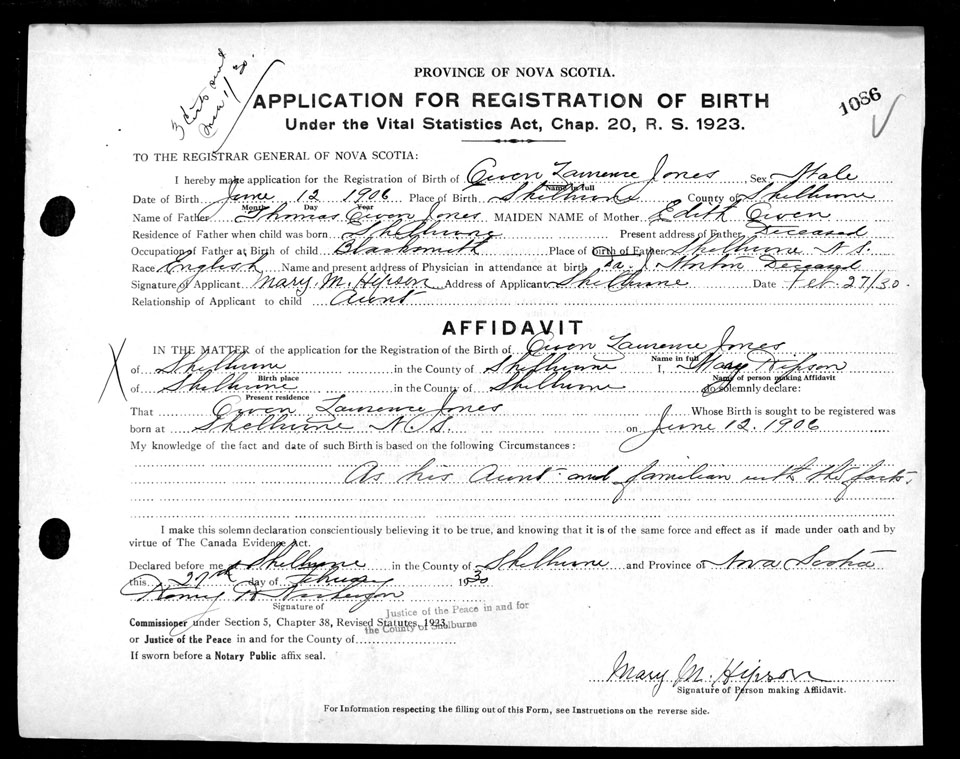 3 Certs sent
Mar 11/30.
PROVINCE OF NOVA SCOTIA.
1086
APPLICATION FOR REGISTRATION OF BIRTH
Under the Vital Statistics Act, Chap. 20, R. S. 1923.
TO THE REGISTRAR GENERAL OF NOVA SCOTIA:
I hereby make application for the Registration of Birth of Owen Lawrence Jones Sex Male
Name in full
Date of Birth June 12 1906 Place of Birth Shelburne County of Shelburne
Month Day Year
Name of Father Thomas Owen Jones MAIDEN NAME of Mother Edith Owen
Residence of Father when child was born Shelburne Present address of Father Deceased
Occupation of Father at Birth of child Blacksmith Place of birth of Father Shelburne N.S.
Race English Name and present address of Physician in attendance at birth Morton Deceased
Signature of Applicant Mary. M. Hipson Address of Applicant Shelburne Date Feb. 27/30.
Relationship of Applicant to child Aunt
AFFIDAVIT
IN THE MATTER of the application for the Registration of the Birth of Owen Lawrence Jones
Name in full
of Shelburne in the County of Shelburne I, Mary Hipson
Birth place Name of person making Affidavit
of Shelburne in the County of Shelburne do solemnly declare:
Present residence
That Owen Lawrence Jones Whose Birth is sought to be registered was
born at Shelburne N.S. on June 12. 1906
My knowledge of the fact and date of such Birth is based on the following Circumstances:
As his Aunt and familiar with the facts.
I make this solemn declaration conscientiously believing it to be true, and knowing that it is of the same force and effect as if made under oath and by
virtue of The Canada Evidence Act.
Declared before me at Shelburne in the County of Shelburne and Province of Nova Scotia
this 27th day of February 1930
Signature of
Justice of the Peace in and for
the County of Shelburne
Commissioner under Section 5, Chapter 38, Revised Statutes, 1923
or Justice of the Peace in and for the County of
If sworn before a Notary Public affix seal.
Mary M. Hipson
Signature of Person making Affidavit.
For Information respecting the filling out of this Form, see Instructions on the reverse side.